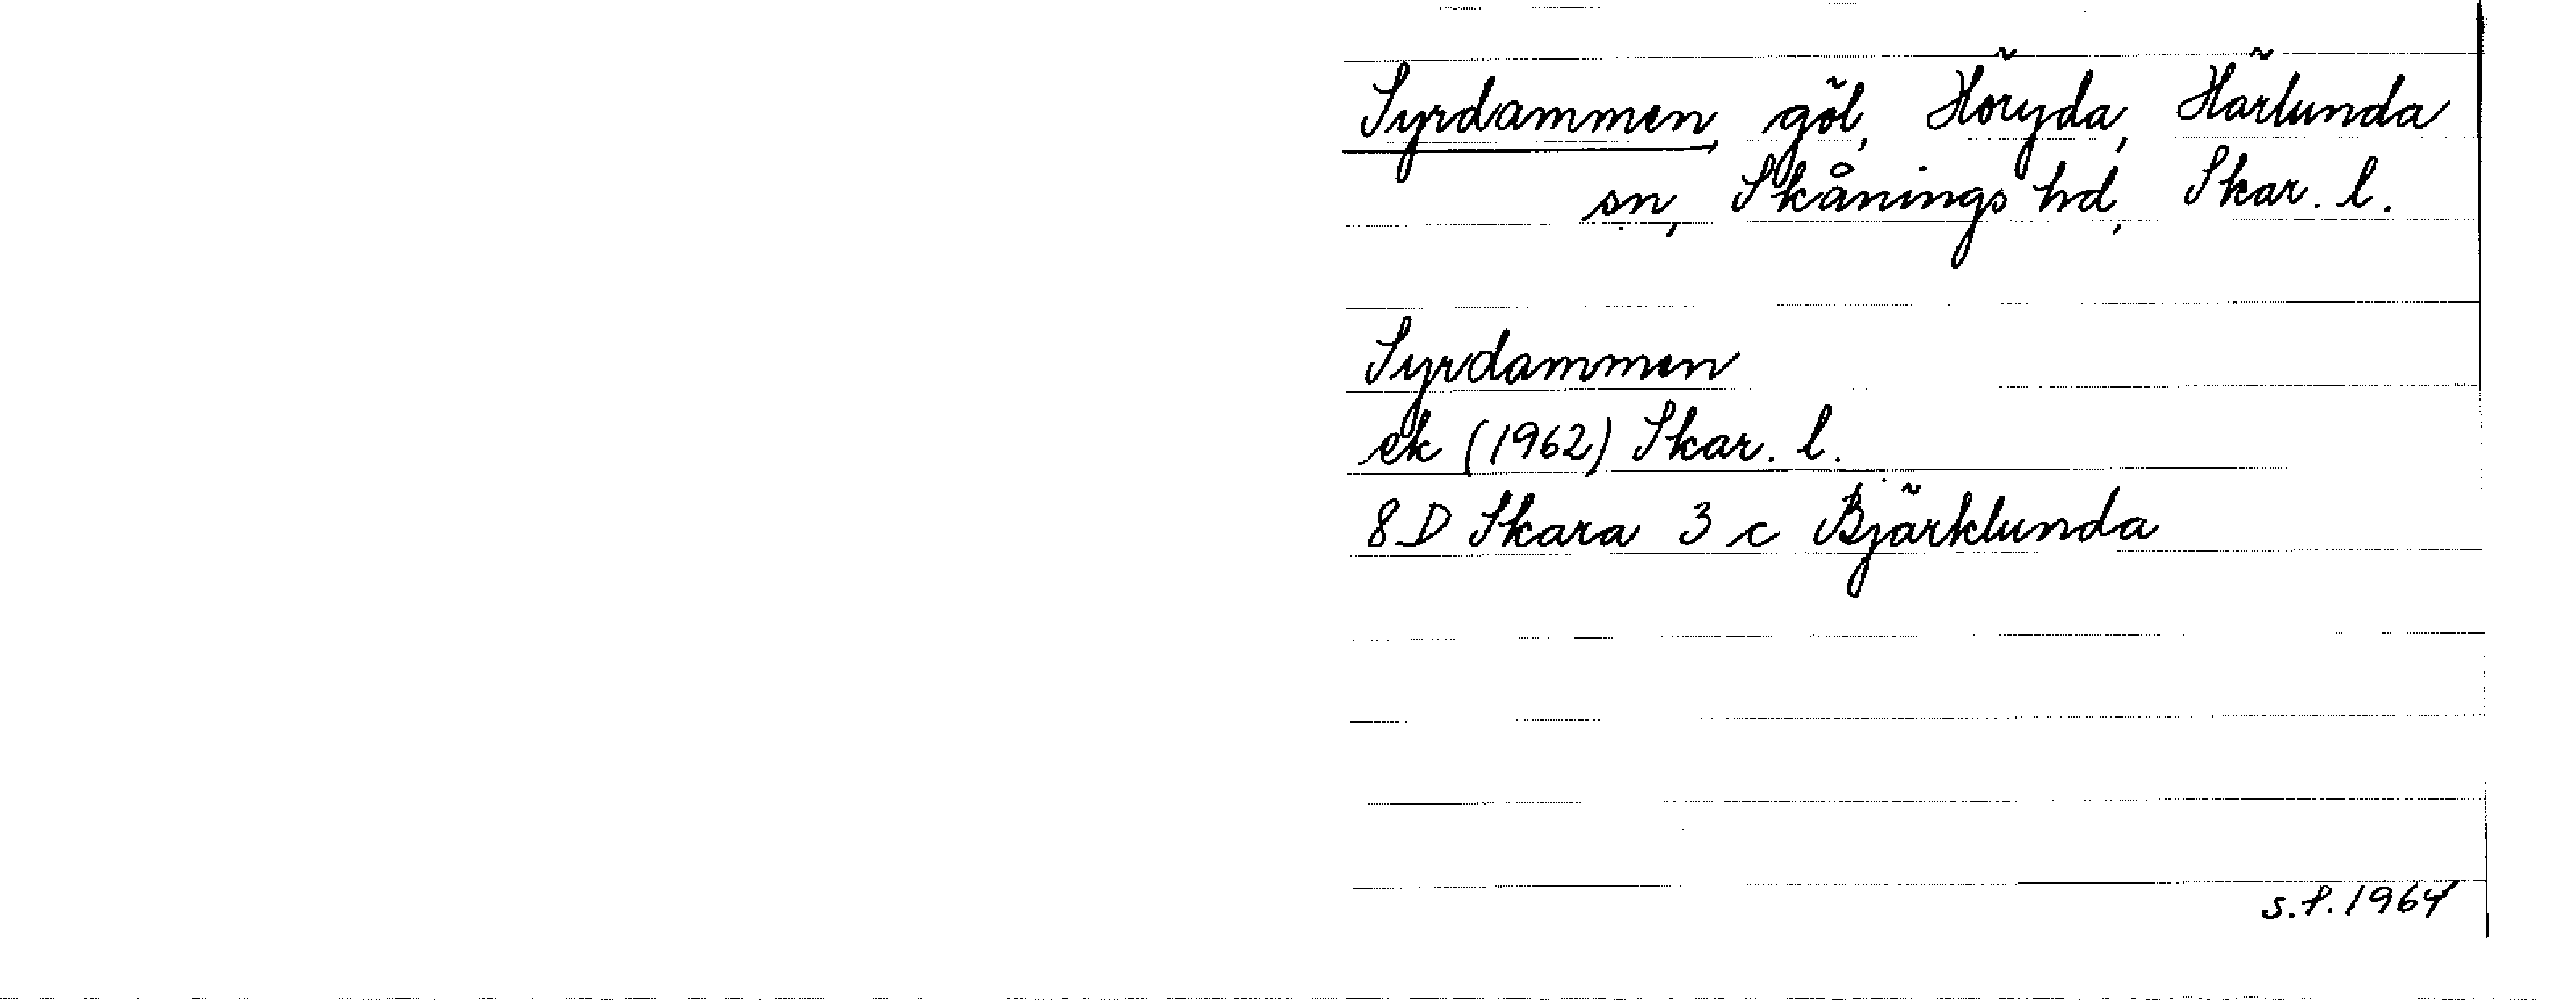 Syrdammen, göl, Höryda, Härlunda
sn, Skånings hd, Skar. l.
Syrdammen
ek (1962) Skar. l.
8 D Skara 3 c Bjärklunda
s.f. 1964